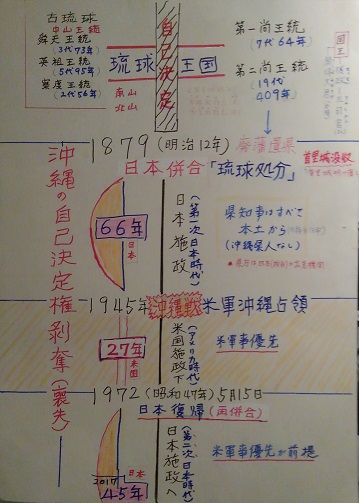 古琉球
中山王統
舜天王統
(3代73年)
英祖王統
(5代95年)
察度王統
(2代56年)
自己決定
琉球王国
南山
北山
第一尚王統
(7代64年)
第二尚王統
(19代
409年)
国王
1879(明治12年)
廃藩置県
日本併合「琉球処分」
首里城没収
沖縄の自己決定権剥奪(喪失)
66年
日本
日本施政
(第一次日本時代)
県知事はすべて
本土から
(沖縄県人なし)
1945年
沖縄戦
米軍沖縄占領
27年
米国
米国施政下
(アメリカ時代)
米軍事優先
1972(昭和47年)5月15日
日本復帰(再併合)
2017
日本
45年
日本施政へ
(第二次日本時代)
米軍事優先が前提